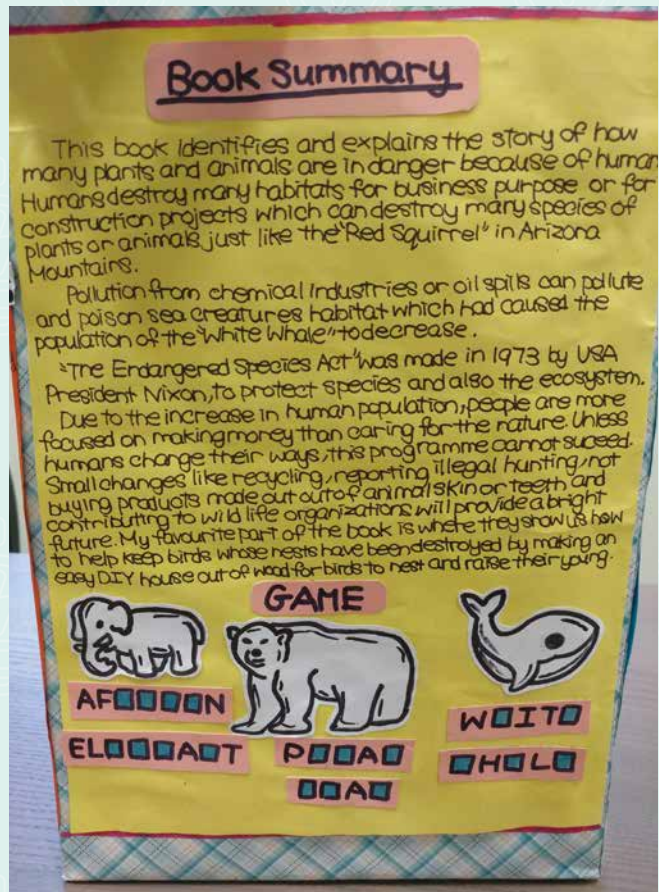 Book Summary
This book Identifies and explains the story of how
many plants and animals are in danger because of human
Humans destroy many habitats for business purpose or for
construction projects which can destroy many species of
plants or animals just like the "Red Squirrel" in Arizona
Mountains.
Pollution from chemical Industries or oil spills can pollute
and poison sea creatures habitat which had caused the
population of the "White Whale" to decrease.
"The Endangered Species Act" was made in 1973 by USA
President Nixon, to protect species and also the ecosystem.
Due to the increase in human population, people are more
focused on making money than caring for the nature. Unless
humans change their ways, this programme cannot suceed.
Small changes like recycling, reporting illegal hunting, not
buying products made out out of animal skin or teeth and
contributing to wild life organizations will provide a bright
future. My favourite part of the book is where they show us how
to help keep birds whose nests have been destroyed by making an
easy DIY house out of wood for birds to nest and raise their young.
GAME
AF□□□□N
EL□□□A□T
P□□A□
□□A□
W□IT□
□H□L□